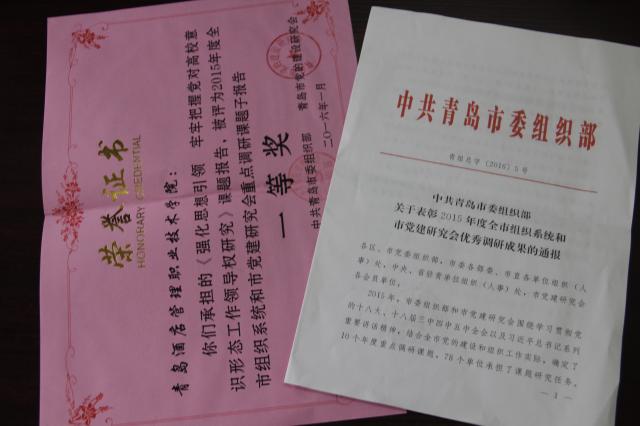 荣誉证书
HONORARY CREDENTIAL
青岛酒店管理职业技术学院：
你们承担的《强化思想引领 牢牢把握党对高校意
识形态工作领导权研究》课题报告，被评为2015年度全
市组织系统和市党建研究会重点调研课题子报告
一等奖
中共青岛市委组织部
青岛市党的建设研究会
二〇一六年一月
中共青岛市委组织部
青组总字〔2016〕5号
中共青岛市委组织部
关于表彰2015年度全市组织系统和
市党建研究会优秀调研成果的通报
各区、市党委组织部，市委各部委、市直各单位组织（人
事）处，中央、省驻青单位组织（人事）处，市党建研究会
各会员单位：
2015年，市委组织部和市党建研究会围绕学习贯彻党
的十八大、十八届三中四中五中全会以及习近平总书记系列
重要讲话精神，结合全市党的建设和组织工作实际，确定了
10个年度重点调研课题，78个单位承担了课题研究任务。
— 1 —